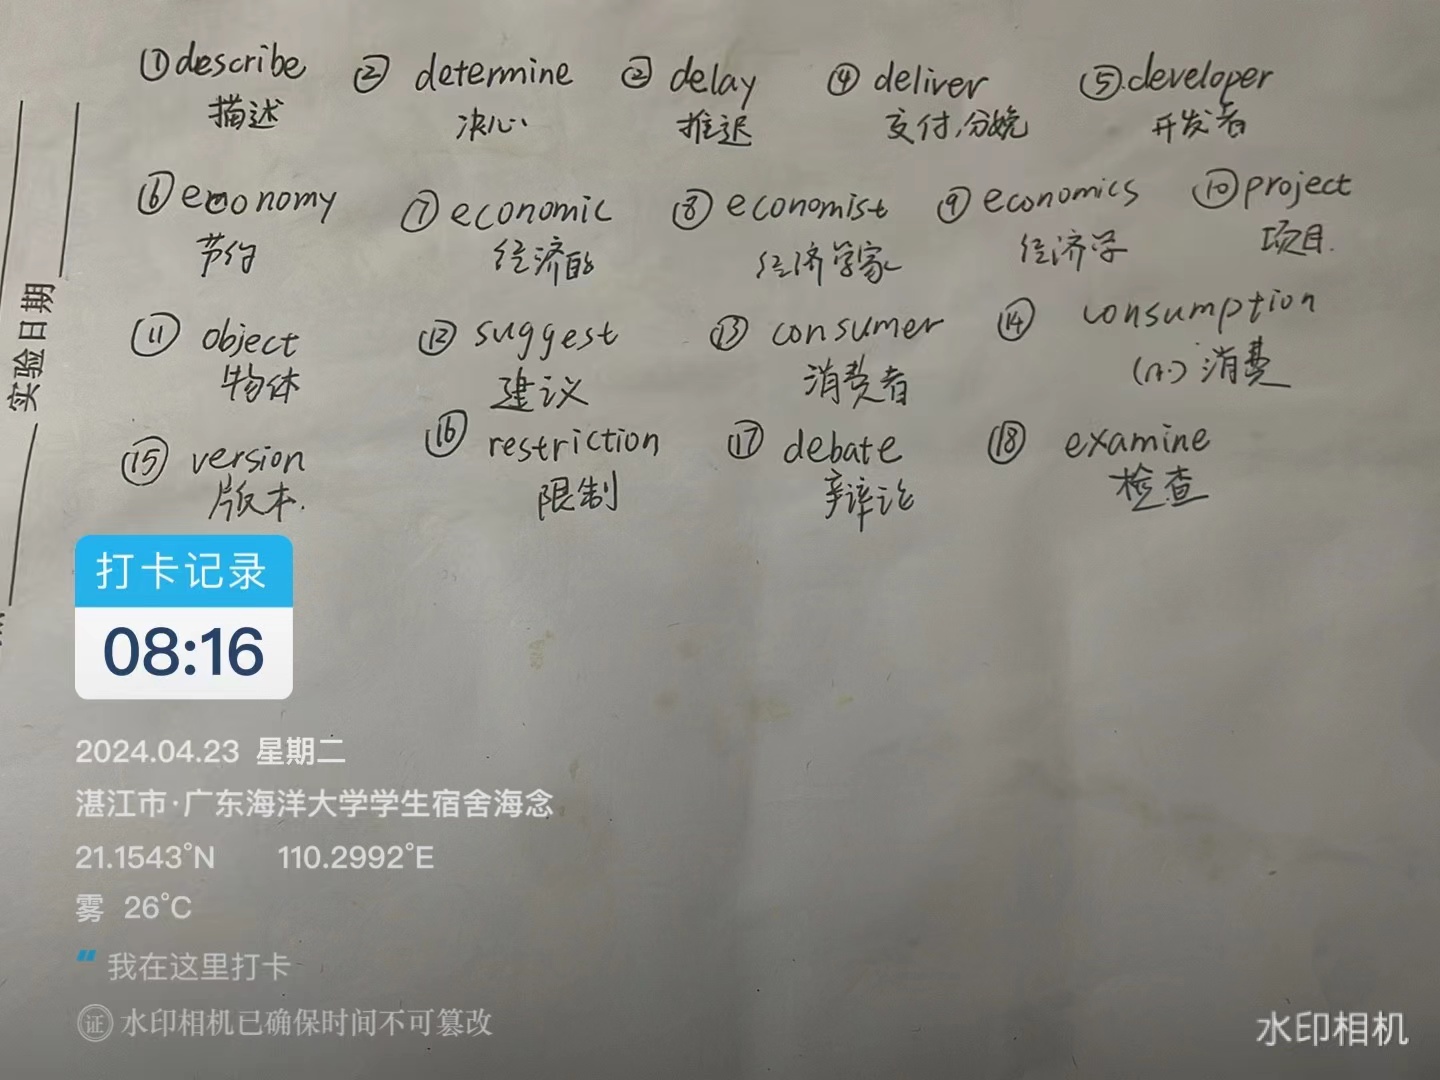 ①describe ② determine ② delay ④ deliver ⑤.developer
描述 决心 推迟 交付,分娩 开发者
⑥ economy ⑦ economic ⑧ economist ⑨ economics ⑩ project
节约 经济的 经济学家 经济学 项目.
⑪ object ⑫ suggest ⑬ consumer ⑭ consumption
物体 建议 消费者 (n.) 消费
⑮ version ⑯ restriction ⑰ debate ⑱ examine
版本. 限制 辩论 检查
实验日期
打卡记录
08:16
2024.04.23 星期二
湛江市·广东海洋大学学生宿舍海念
21.1543°N 110.2992°E
雾 26°C
“ 我在这里打卡
证 水印相机已确保时间不可篡改
水印相机